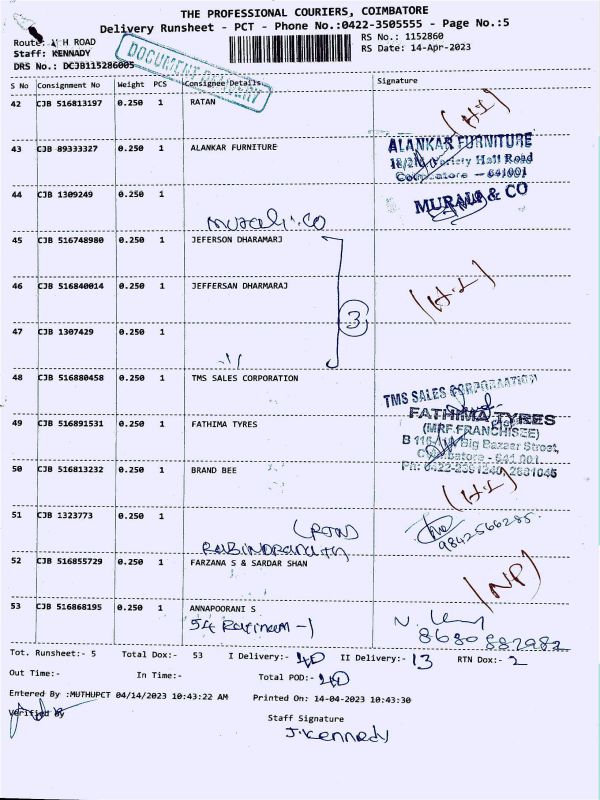 THE PROFESSIONAL COURIERS, COIMBATORE
Delivery Runsheet - PCT - Phone No.:0422-3505555 - Page No.:5
Route: H ROAD
RS No.: 1152860
Staff: KENNADY
RS Date: 14-Apr-2023
DRS No.: DCJB115286005
DOCUMENT DELIVERY
S No Consignment No Weight PCS Consignee Details Signature
42 CJB 516813197 0.250 1 RATAN
(H.I)
43 CJB 89333327 0.250 1 ALANKAR FURNITURE
ALANKAR FURNITURE
Variety Hall Road
Coimbatore - 641001
44 CJB 1309249 0.250 1
MURALI & CO
Murali.CO
45 CJB 516748980 0.250 1 JEFERSON DHARAMARJ
46 CJB 516840014 0.250 1 JEFFERSAN DHARMARAJ
(H.I)
3
47 CJB 1307429 0.250 1
48 CJB 516880458 0.250 1 TMS SALES CORPORATION
TMS SALES CORPORAATION
49 CJB 516891531 0.250 1 FATHIMA TYRES
FATHIMA TYRES
(MRF FRANCHISEE)
Big Bazaar Street,
Coimbatore - 641 001.
50 CJB 516813232 0.250 1 BRAND BEE
(H.I)
51 CJB 1323773 0.250 1
(RTN)
RABINDRANATH
9842566285
52 CJB 516855729 0.250 1 FARZANA S & SARDAR SHAN
(NP)
53 CJB 516868195 0.250 1 ANNAPOORANI S
54 Ratinam -1
8680882982
Tot. Runsheet:- 5 Total Dox:- 53 I Delivery:- 40 II Delivery:- 13 RTN Dox:- 2
Out Time:- In Time:- Total POD:- 40
Entered By :MUTHUPCT 04/14/2023 10:43:22 AM Printed On: 14-04-2023 10:43:30
Verified By
Staff Signature
J.Kennedy